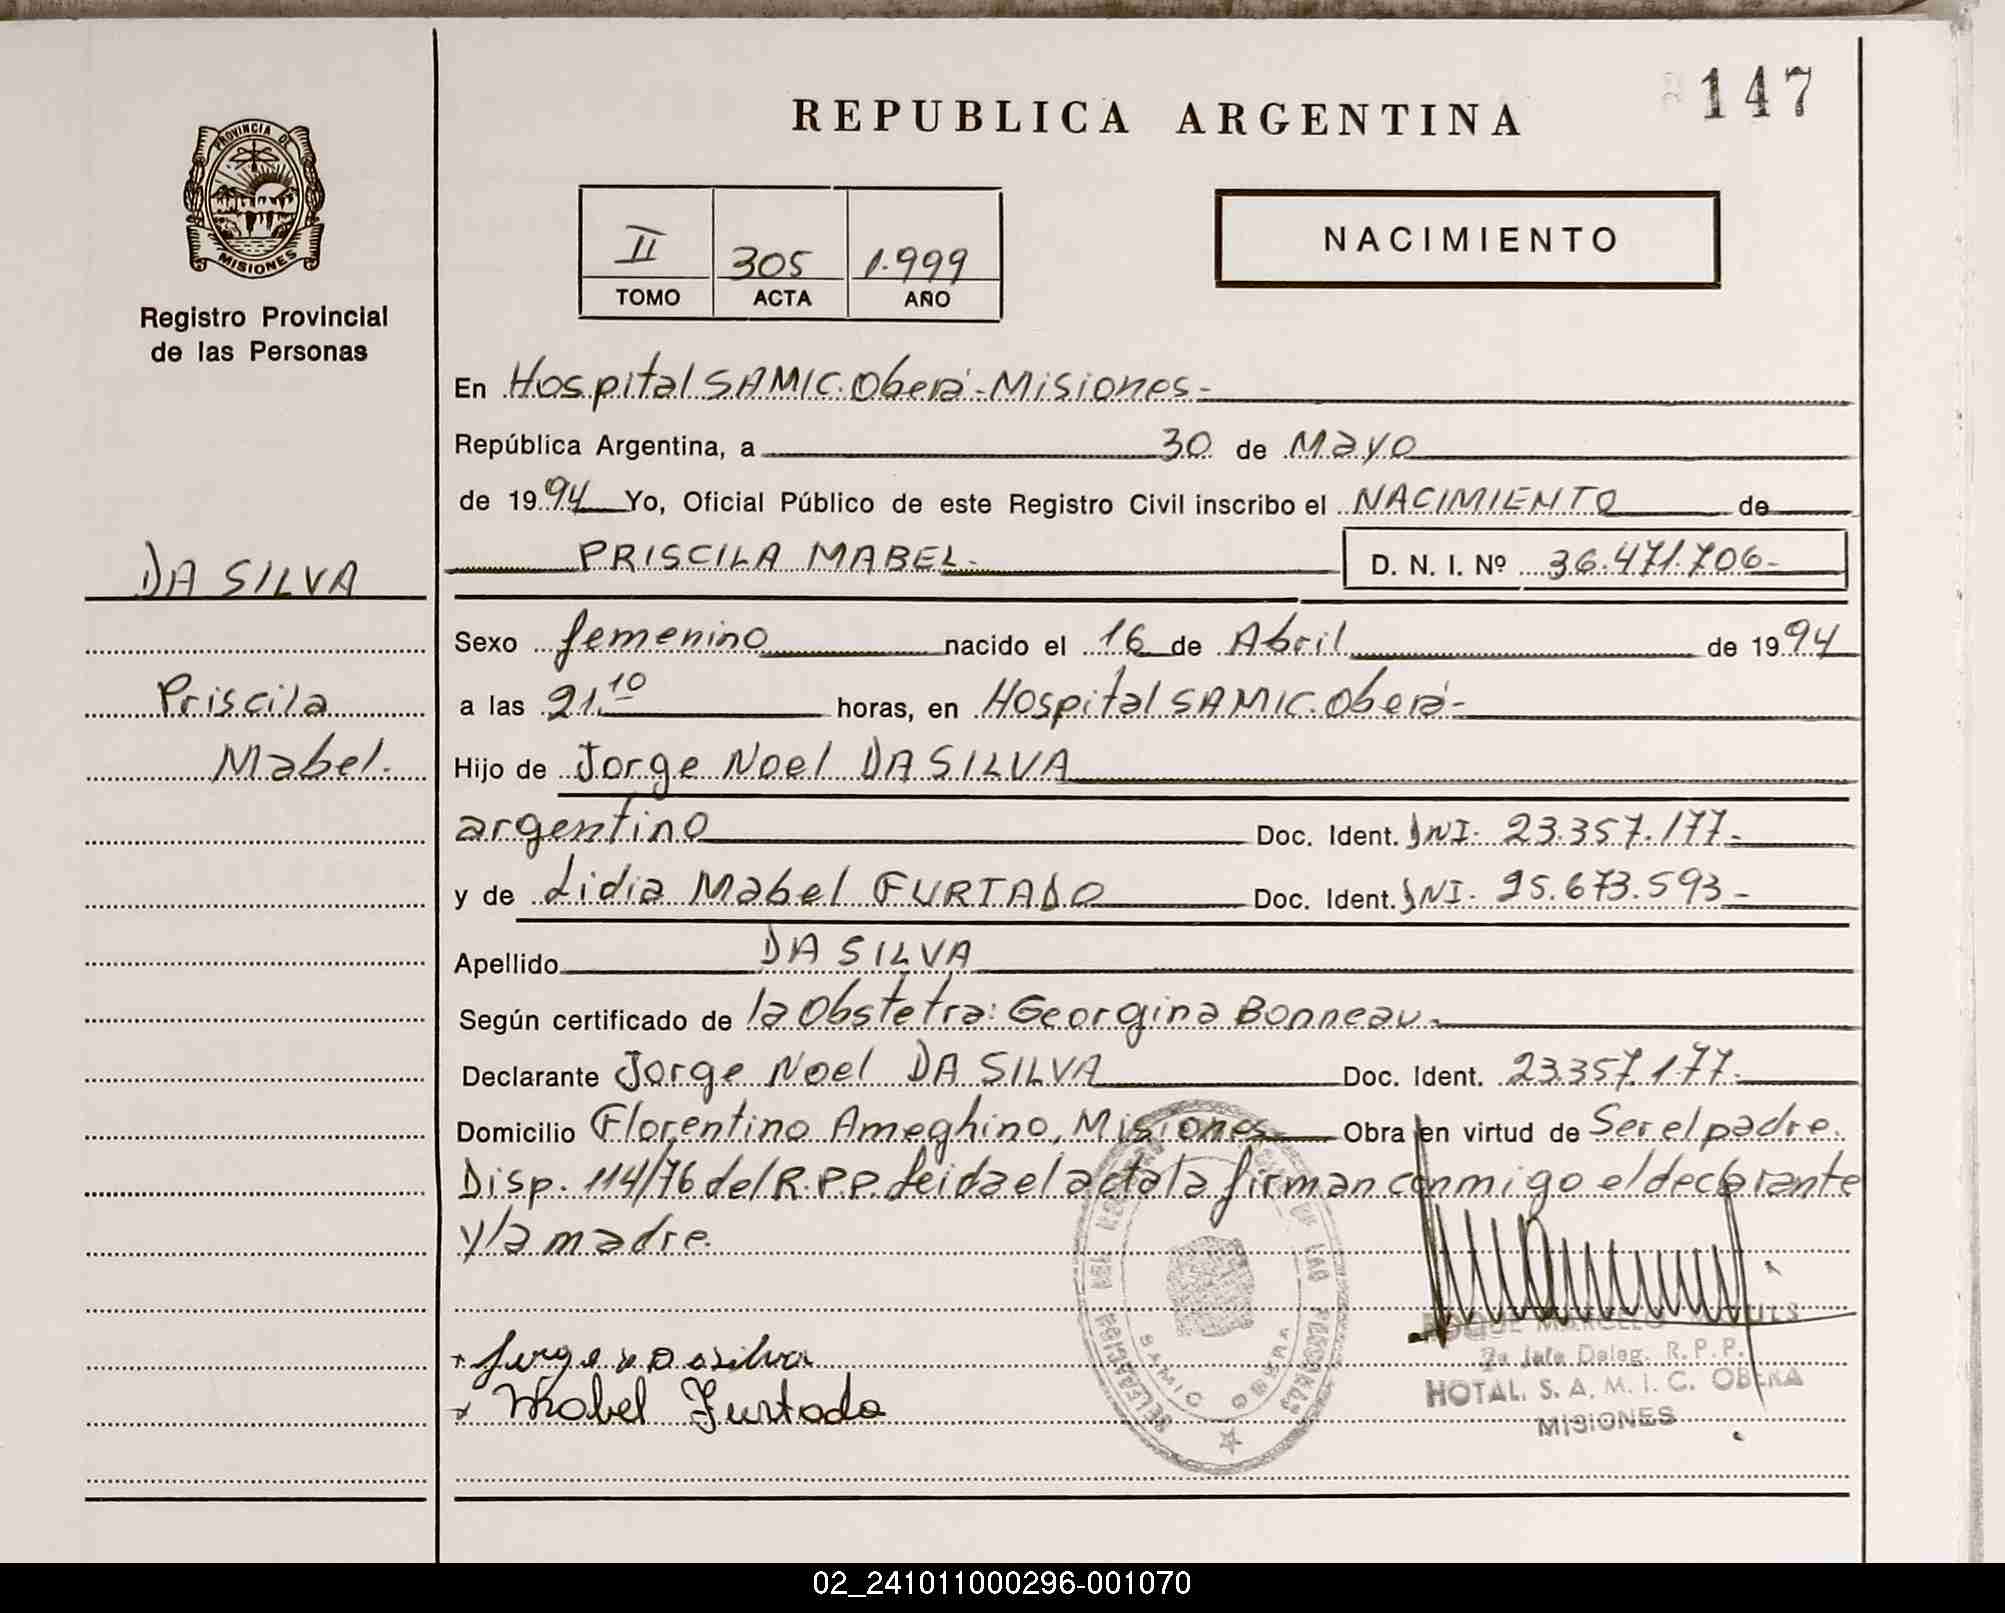 147
REPUBLICA ARGENTINA
PROVINCIA DE
MISIONES
Registro Provincial
de las Personas
II 305 1.999
TOMO ACTA AÑO
NACIMIENTO
En Hospital SAMIC. Oberá - Misiones-
República Argentina, a 30 de Mayo
de 1994 Yo, Oficial Público de este Registro Civil inscribo el NACIMIENTO de
PRISCILA MABEL- D. N. I. Nº 36.471.706-
DA SILVA
Priscila
Mabel.
Sexo femenino nacido el 16 de Abril de 1994
a las 21,10 horas, en Hospital SAMIC. Oberá-
Hijo de Jorge Noel DA SILVA
argentino Doc. Ident. DNI. 23.357.177-
y de Lidia Mabel FURTADO Doc. Ident. DNI. 25.673.593-
Apellido DA SILVA
Según certificado de la Obstetra: Georgina Bonneau-
Declarante Jorge Noel DA SILVA Doc. Ident. 23.357.177-
Domicilio Florentino Ameghino, Misiones Obra en virtud de Ser el padre.
Disp. 114/76 del R.P.P. Leida el acta la firman conmigo el declarante
y la madre.
Jorge n Dasilva
Mabel Furtado
SAMIC OBERA
ROQUE MARCELO
2º Jefe Deleg. R. P. P.
HOTAL. S. A. M. I. C. OBERA
MISIONES
02_241011000296-001070